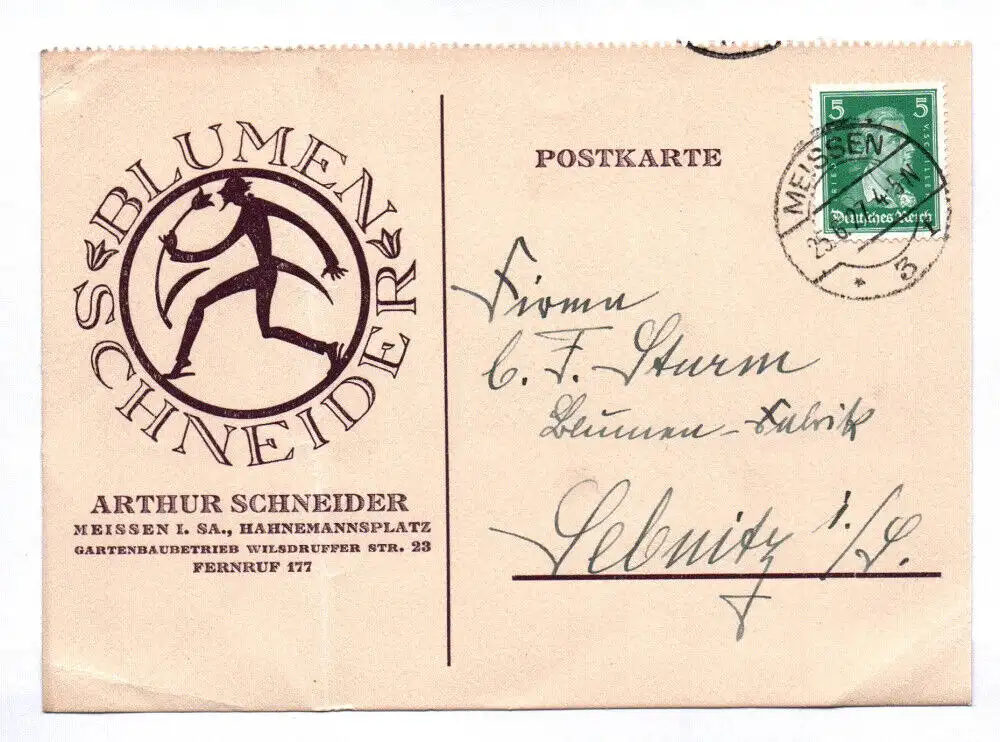 BLUMEN
SCHNEIDER
ARTHUR SCHNEIDER
MEISSEN I. SA., HAHNEMANNSPLATZ
GARTENBAUBETRIEB WILSDRUFFER STR. 23
FERNRUF 177
POSTKARTE
5 5
Deutsches Reich
MEISSEN
25.6.27.4-5N
* 3
Firma
C. F. Sturm
Blumen-Fabrik
Sebnitz i./S.